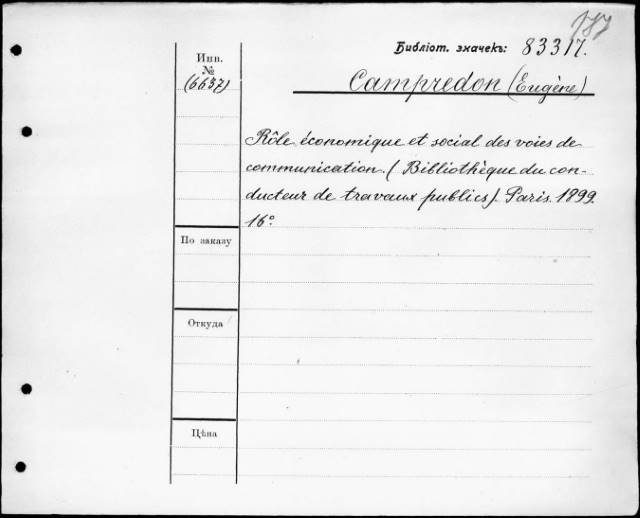 787
Библіот. значекъ: 83317.
Инв.
№
(6637)
Campredon (Eugène)
Rôle économique et social des voies de
communication. (Bibliothèque du con-
ducteur de travaux publics). Paris. 1899.
16º.
По заказу
Откуда
Цѣна